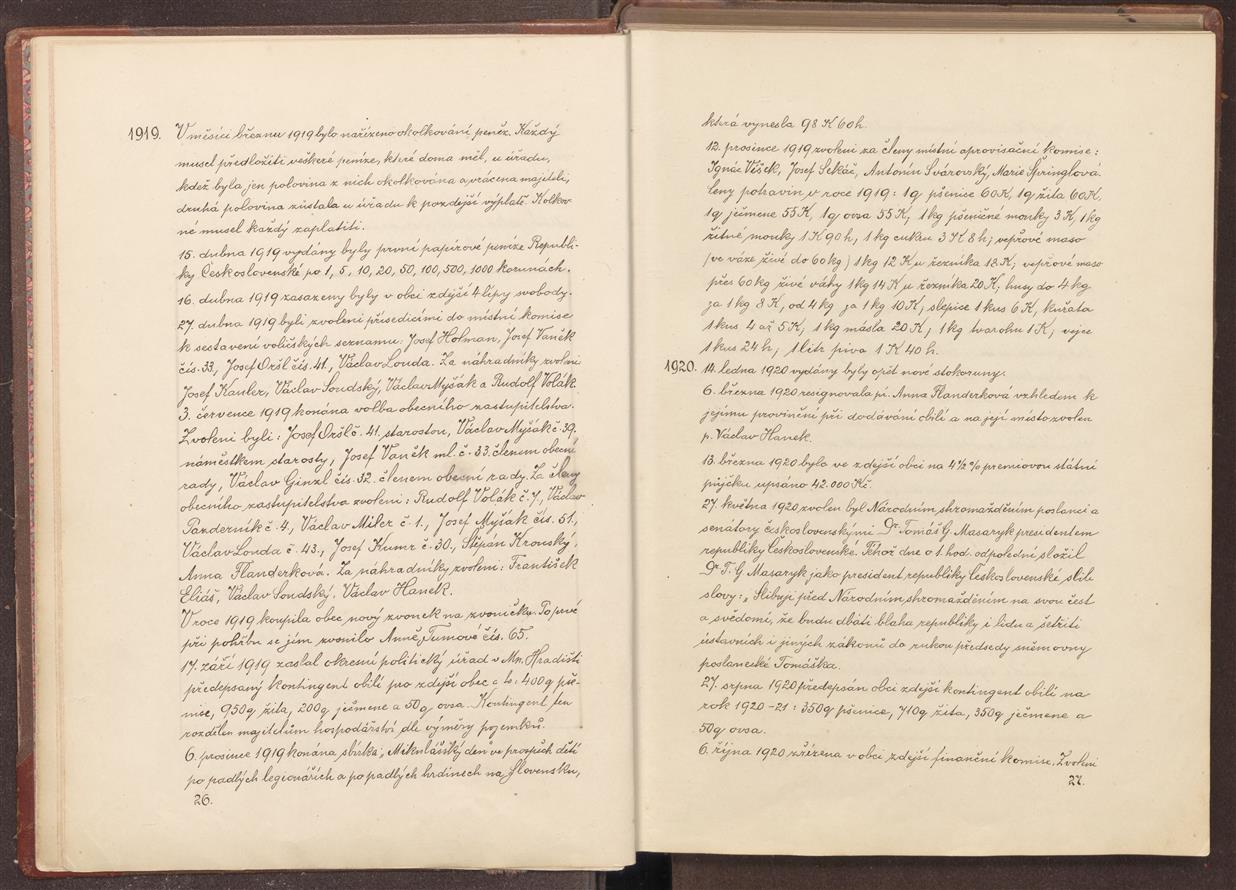 1919. V měsíci březnu 1919 bylo nařízeno okolkování peněz. Každý
musel předložiti veškeré peníze, které doma měl, u úřadu,
kdež byla jen polovina z nich okolkována a vrácena majiteli,
druhá polovina zůstala u úřadu k pozdější výplatě. Kolkov-
né musel každý zaplatiti.
15. dubna 1919 vydány byly první papírové peníze Republi-
ky Československé po 1, 5, 10, 20, 50, 100, 500, 1000 korunách.
16. dubna 1919 zasazeny byly v obci zdejší 4 lípy svobody.
27. dubna 1919 byli zvoleni přísedícími do místní komise
k sestavení voličských seznamů: Josef Holman, Josef Vaněk
čís. 33, Josef Oršl čís. 41, Václav Londa. Za náhradníky zvoleni
Josef Kanler, Václav Sondský, Václav Myšák a Rudolf Volák.
3. července 1919 konána volba obecního zastupitelstva.
Zvoleni byli: Josef Oršl č. 41. starostou, Václav Myšák č. 39.
náměstkem starosty, Josef Vaněk ml. č. 33. členem obecní
rady, Václav Ginzl čís. 32. členem obecní rady. Za členy
obecního zastupitelstva zvoleni: Rudolf Volák č. 7., Václav
Pazderník č. 4., Václav Miler č. 1., Josef Myšák čís. 51.,
Václav Londa č. 43., Josef Kumr č. 30., Štěpán Kronský,
Anna Flanderková. Za náhradníky zvoleni: František
Eliáš, Václav Sondský, Václav Hanek.
V roce 1919 koupila obec nový zvonek na zvoničku. Po prvé
při pohřbu se jím zvonilo Anně Tumové čís. 65.
17. září 1919 zaslal okresní politický úřad v Mn. Hradišti
předepsaný kontingent obilí pro zdejší obec a to: 400 q pše-
nice, 950 q žita, 200 q ječmene a 50 q ovsa. Kontingent ten
rozdělen majitelům hospodářství dle výměry pozemků.
6. prosince 1919 konána sbírka „Mikulášský den" ve prospěch dětí
po padlých legionářích a po padlých hrdinech na Slovensku,
26.
která vynesla 98 K 60 h.
12. prosince 1919 zvoleni za členy místní aprovisační komise:
Ignác Věšek, Josef Sekáč, Antonín Svárovský, Marie Špringlová.
Ceny potravin v roce 1919: 1 q pšenice 60 K, 1 q žita 60 K,
1 q ječmene 55 K, 1 q ovsa 55 K, 1 kg pšeničné mouky 3 K, 1 kg
žitné mouky 1 K 90 h, 1 kg cukru 3 K 8 h; vepřové maso
(ve váze živé do 60 kg) 1 kg 12 K, u řezníka 18 K; vepřové maso
přes 60 kg živé váhy 1 kg 14 K u řezníka 20 K; husy do 4 kg
za 1 kg 8 K, od 4 kg za 1 kg 10 K; slepice 1 kus 6 K, kuřata
1 kus 4 až 5 K, 1 kg másla 20 K, 1 kg tvarohu 1 K; vejce
1 kus 24 h; 1 litr piva 1 K 40 h.
1920. 14. ledna 1920 vydány byly opět nové stokoruny.
6. března 1920 resignovala pí. Anna Flanderková vzhledem k
jejímu provinění při dodávání obilí a na její místo zvolen
p. Václav Hanek.
13. března 1920 bylo ve zdejší obci na 4 1/2 % premiovou státní
půjčku upsáno 42.000 Kč.
27. května 1920 zvolen byl Národním shromážděním poslanci a
senátory československými Dr. Tomáš G. Masaryk presidentem
republiky Československé. Téhož dne o 1. hod. odpolední složil
Dr. T. G. Masaryk jako president republiky Československé slib
slovy: „Slibuji před Národním shromážděním na svou čest
a svědomí, že budu dbáti blaha republiky i lidu a šetřiti
ústavních i jiných zákonů do rukou předsedy sněmovny
poslanecké Tomáška.
27. srpna 1920 předepsán obci zdejší kontingent obilí na
rok 1920-21: 350 q pšenice, 710 q žita, 350 q ječmene a
50 q ovsa.
6. října 1920 zřízena v obci zdejší finanční komise. Zvoleni
27.